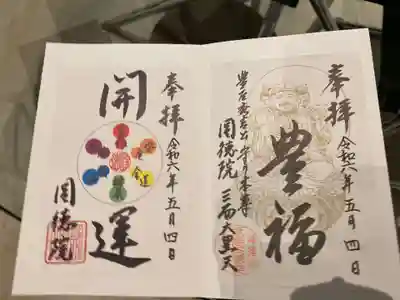 奉拝
令和六年五月四日
豊臣秀吉公守り本尊
圓徳院 三面大黒天
豊福
奉拝
令和六年五月四日
開運
金運
圓徳院